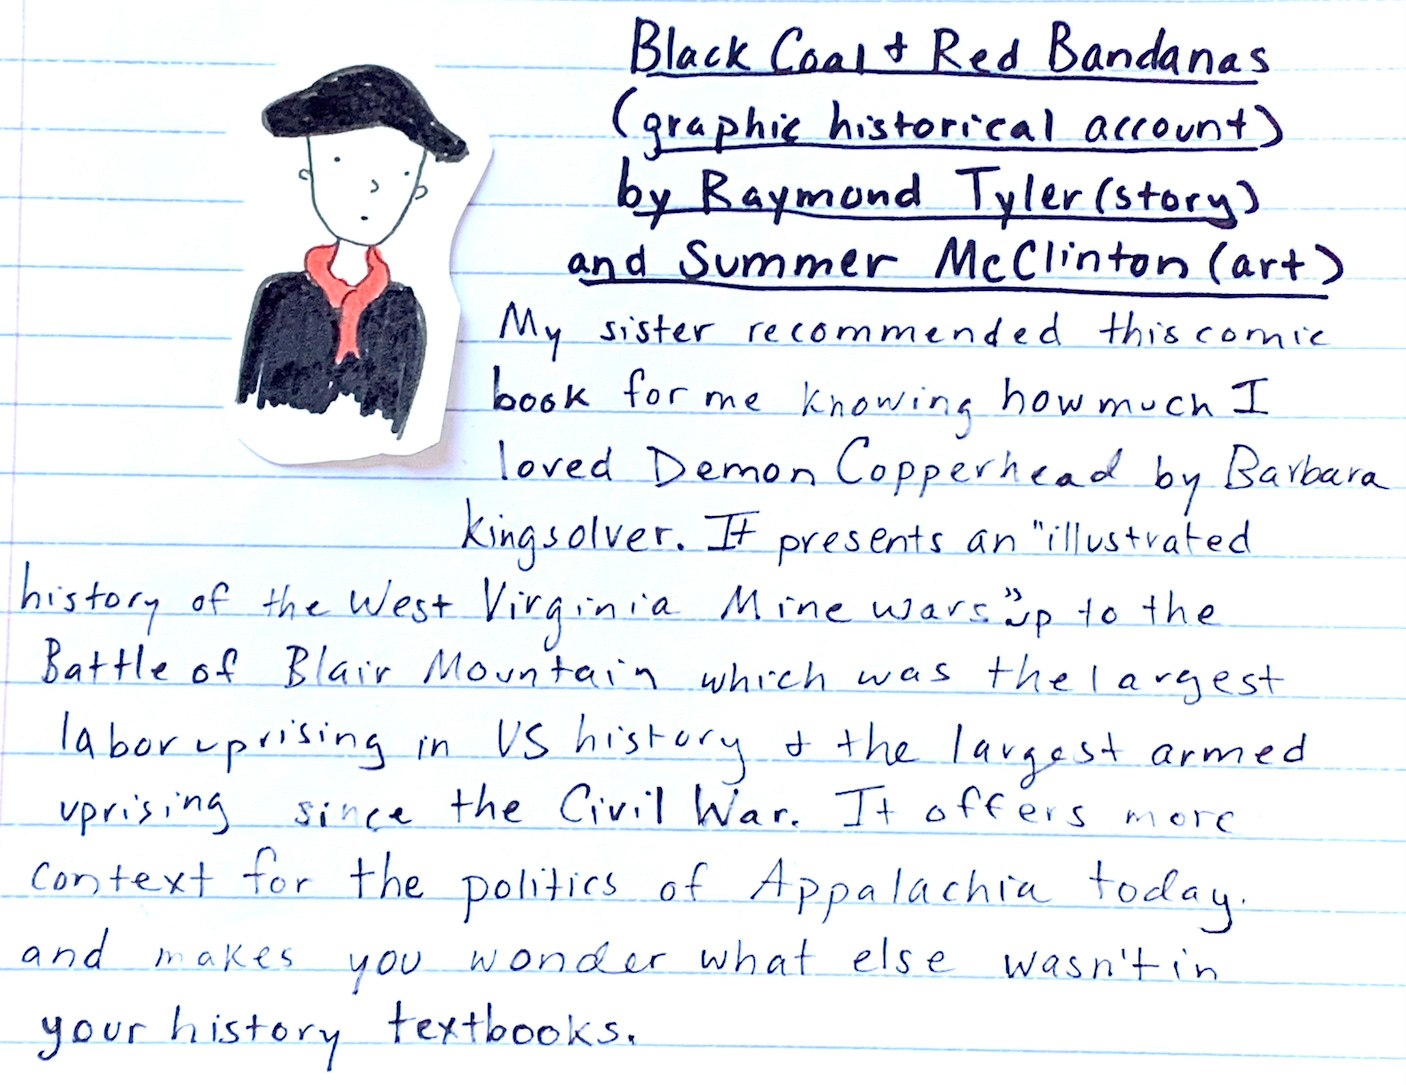 Black Coal + Red Bandanas
(graphic historical account)
by Raymond Tyler (story)
and Summer McClinton (art)
My sister recommended this comic
book for me knowing how much I
loved Demon Copperhead by Barbara
Kingsolver. It presents an "illustrated
history of the West Virginia Mine wars" up to the
Battle of Blair Mountain which was the largest
labor uprising in US history + the largest armed
uprising since the Civil War. It offers more
context for the politics of Appalachia today.
and makes you wonder what else wasn't in
your history textbooks.